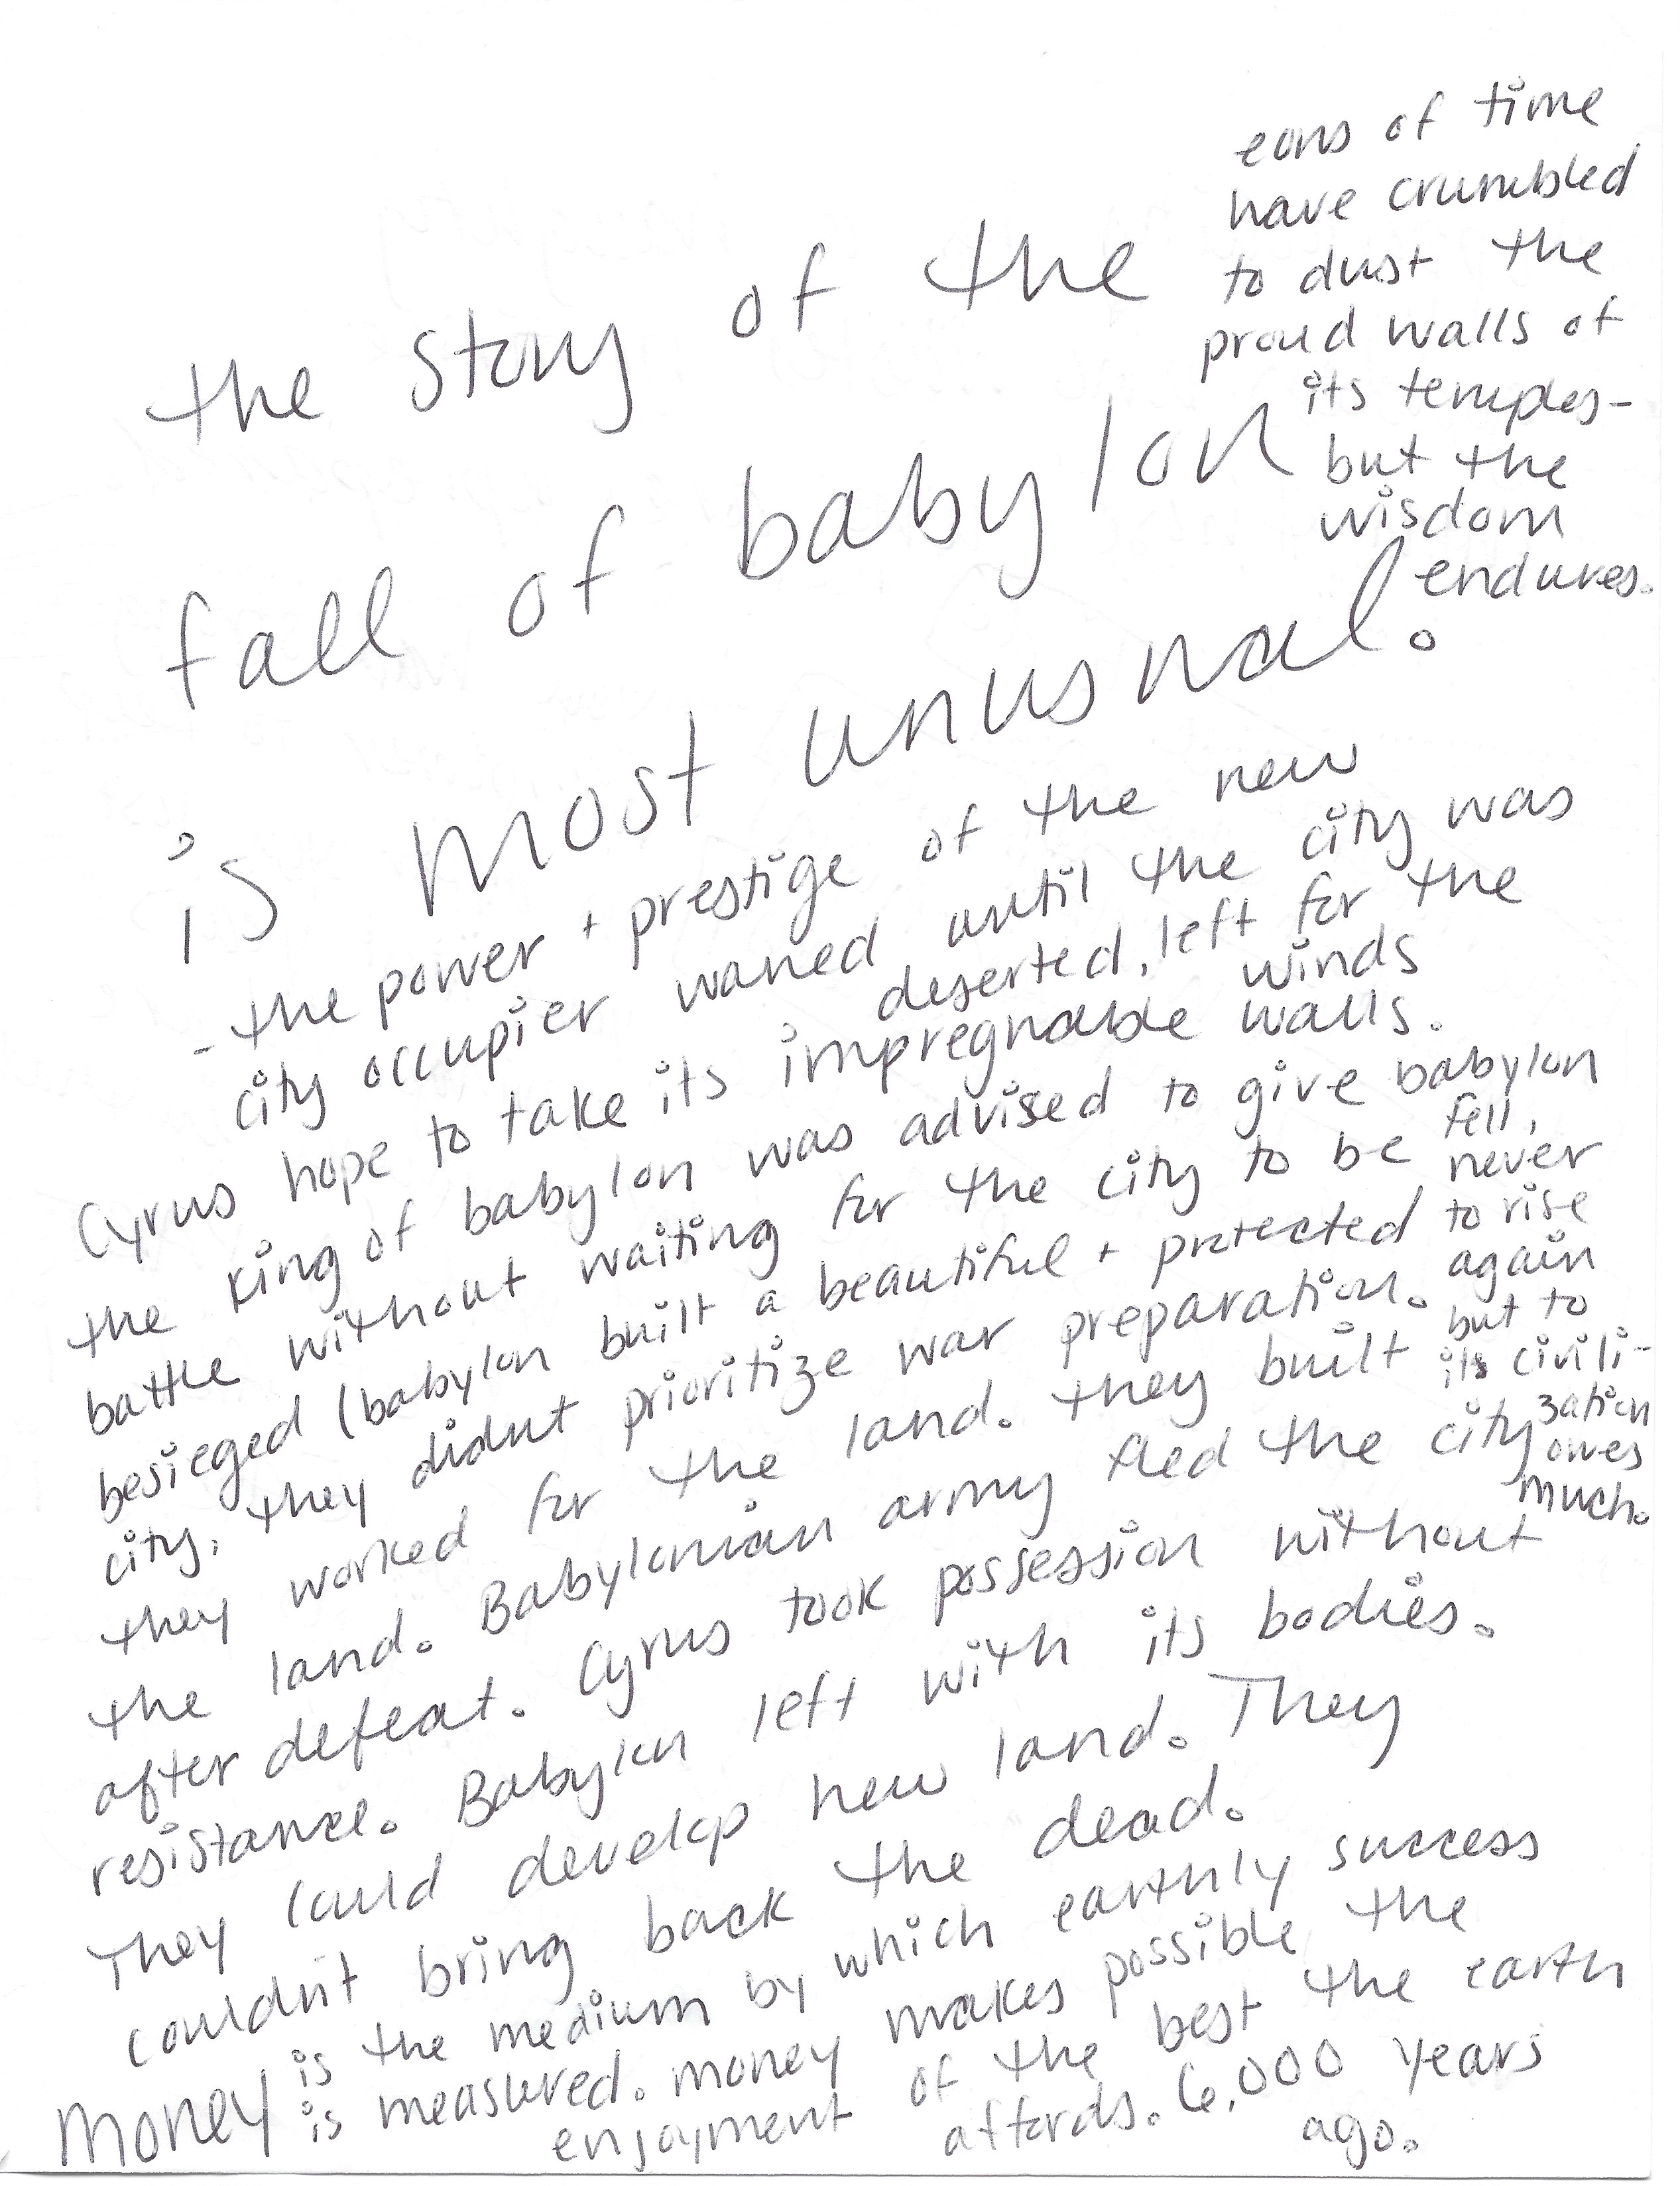 the story of the
fall of babylon
is most unusual.
eons of time
have crumbled
to dust the
proud walls of
its temples-
but the
wisdom
endures.
- the power + prestige of the new
city occupier waned until the city was
deserted, left for the
winds
Cyrus hope to take its impregnable walls.
the king of babylon was advised to give
battle without waiting for the city to be
besieged (babylon built a beautiful + protected
city, they didnt prioritize war preparation.
they worked for the land. they built
the land. Babylonian army fled the city
after defeat. Cyrus took possession without
resistance. Babylon left with its bodies.
They could develop new land. They
couldn't bring back the dead.
babylon
fell,
never
to rise
again
but to
its civili-
zation
owes
much.
money is the medium by which earthly success
is measured. money makes possible the
enjoyment of the best the earth
affords. 6,000 years
ago.